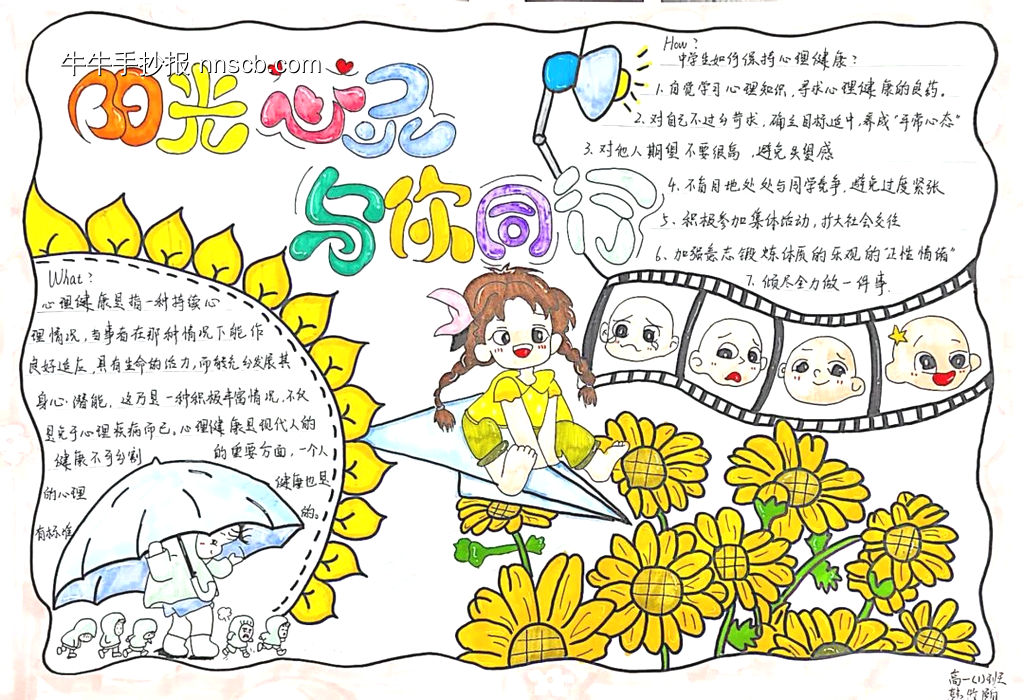 牛牛手抄报 nnscb.com
阳光心灵
与你同行
How?
中学生如何保持心理健康?
1. 自觉学习心理知识,寻求心理健康的良药。
2. 对自己不过分苛求,确立目标适中,养成"平常心态"
3. 对他人期望不要很高,避免失望感
4. 不盲目地处处与同学竞争,避免过度紧张
5. 积极参加集体活动,扩大社会交往
6. 加强意志锻炼体质的乐观的"正性情绪"
7. 倾尽全力做一件事.
What?
心理健康是指一种持续心
理情况,当事者在那种情况下能作
良好适应,具有生命的活力,而能充分发展其
身心潜能,这乃是一种积极丰富情况,不仅
是免于心理疾病而已。心理健康是现代人的
健康不可分割 的重要方面,一个人
的心理 健康也是
有标准 的。
高一(1)班